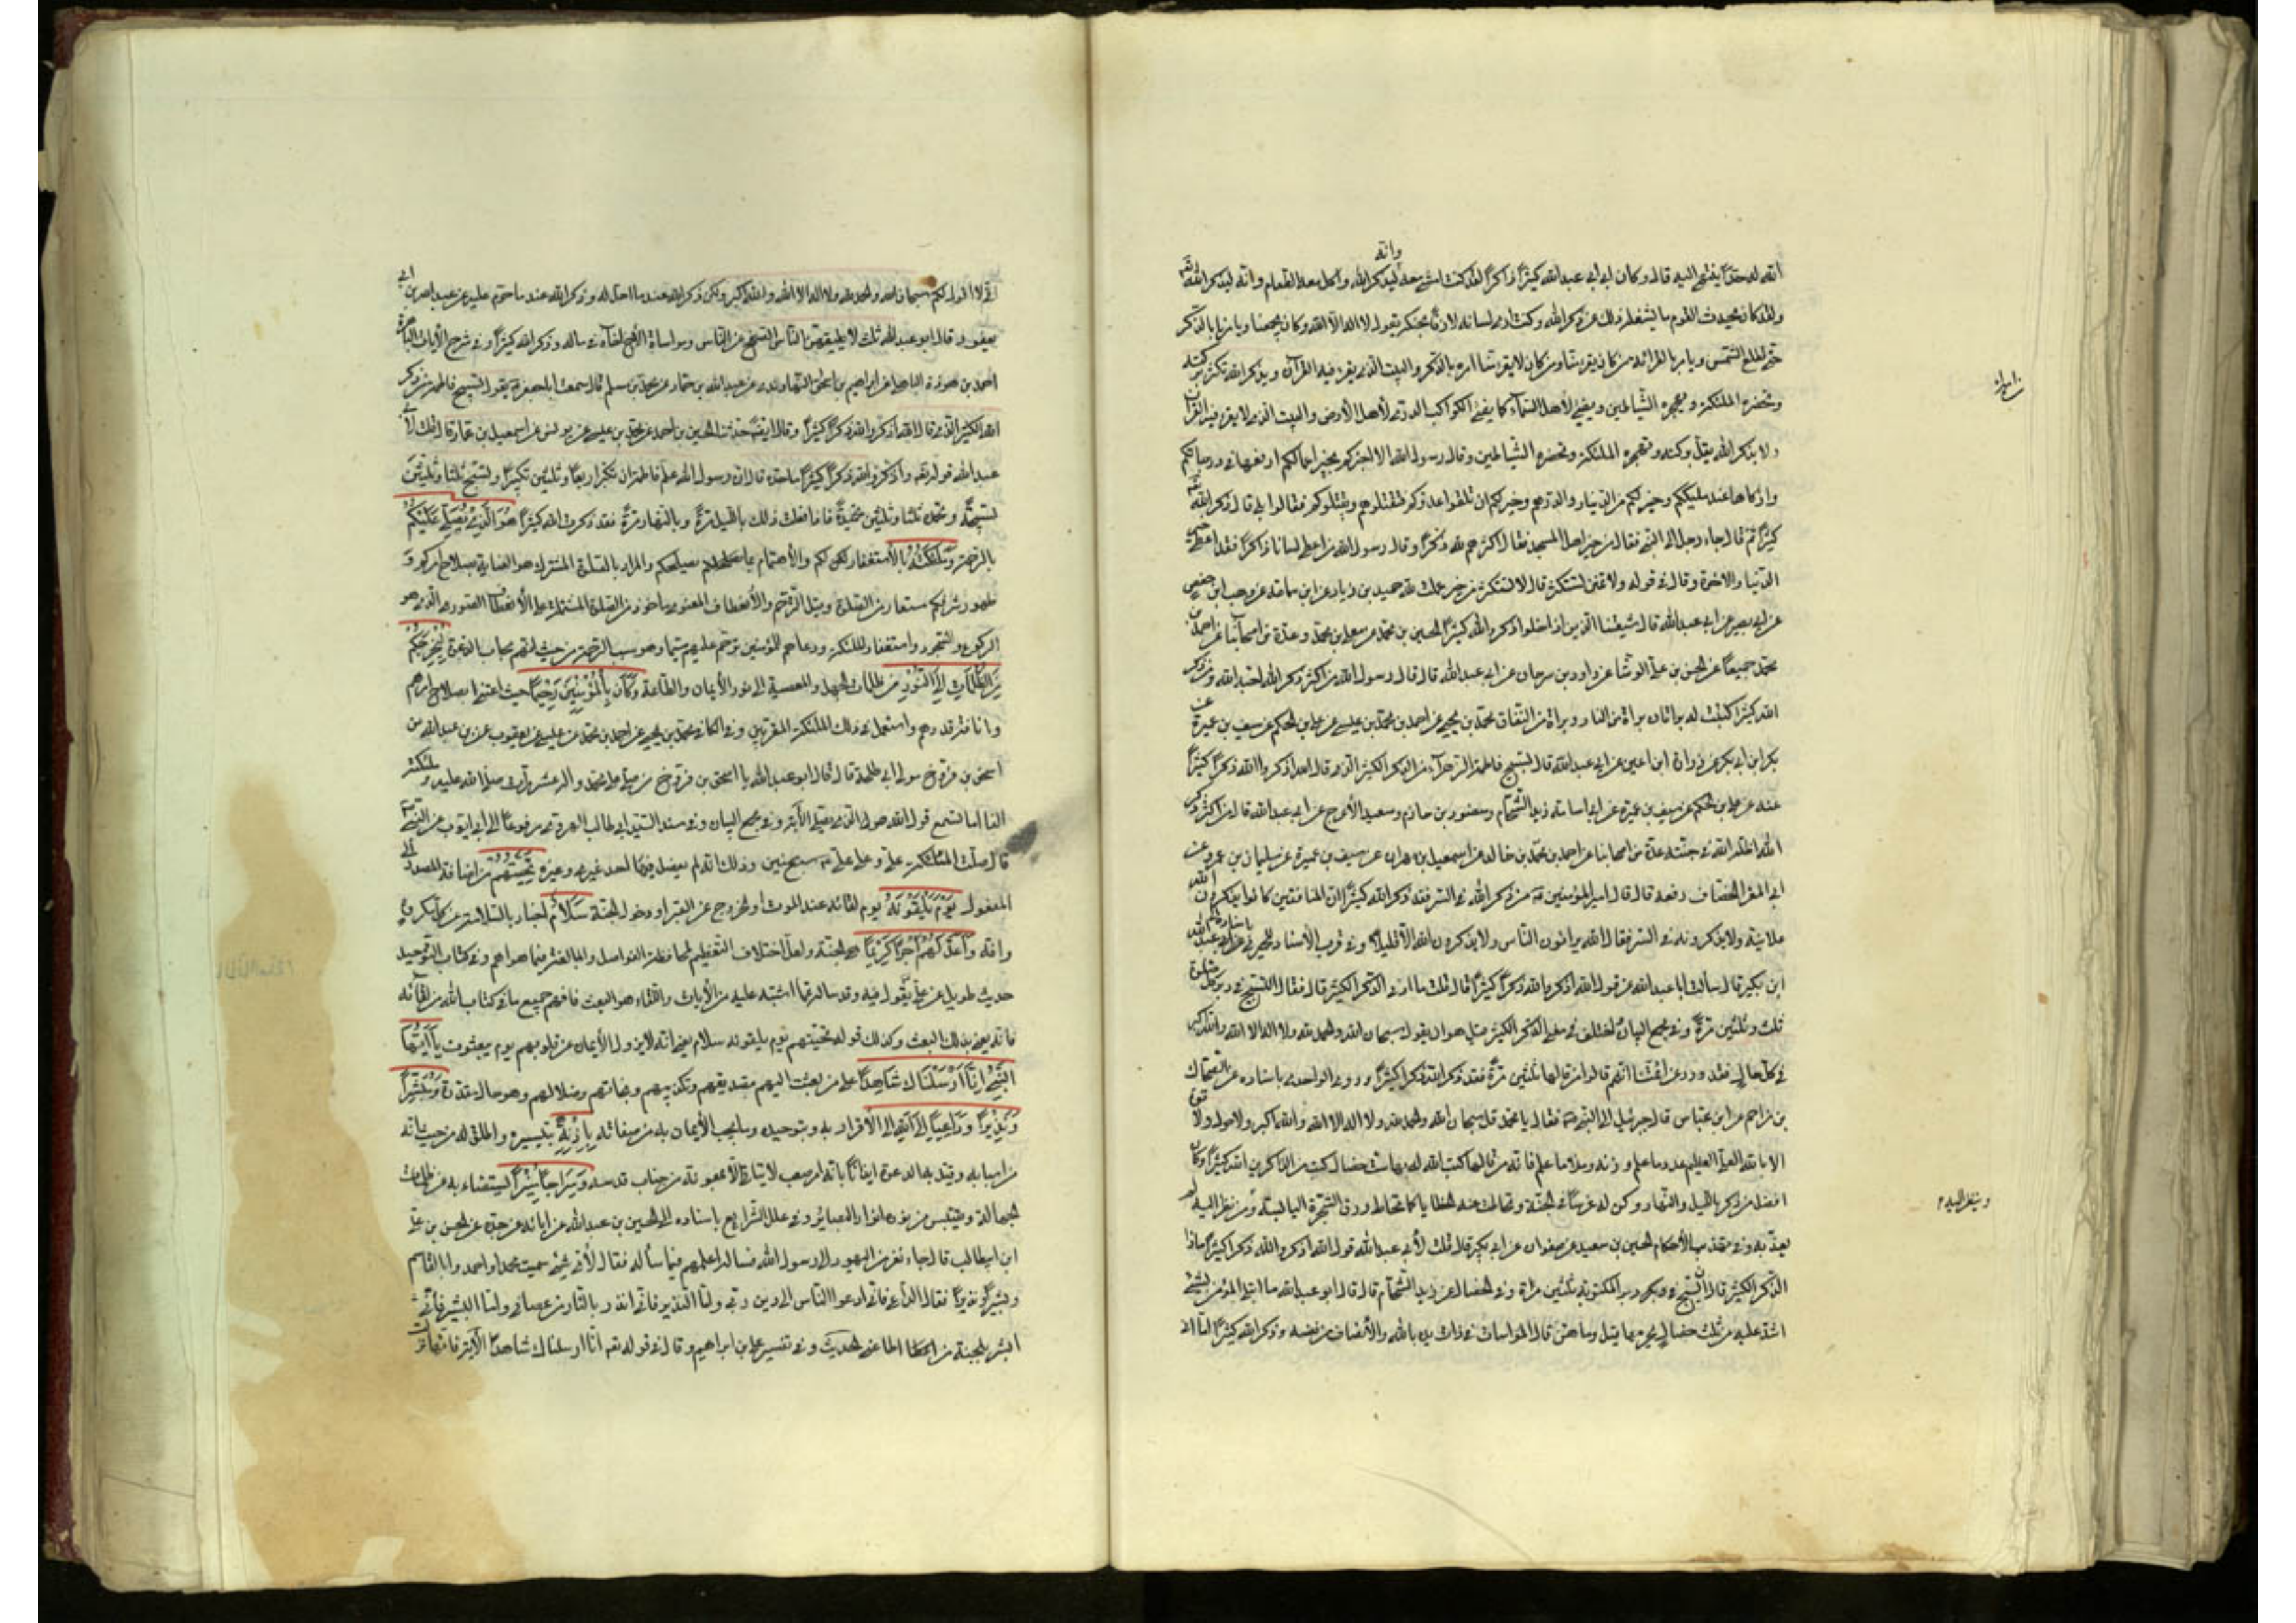 انه له حقا ينتهى اليه قال وكان ابى ابى عبدالله كثيرا ذاكرا لقد كنت امشى معه وانه ليذكر الله واكل معه الطعام وانه ليذكر الله
ولقد كان يحدث القوم ما يشغله ذلك عن ذكر الله وكنت ارى لسانه لازقا بحنكه يقول لا اله الا الله وكان يجمعنا ويامرنا بالذكر
حتى تطلع الشمس ويامر بالقرائة من كان يقرء منا ومن كان لا يقرء منا امره بالذكر والبيت الذى يقرء فيه القرآن ويذكر الله تكثر بركته
وتحضره الملئكة وتهجره الشياطين ويضئ لاهل السماء كما يضئ الكوكب الدرى لأهل الأرض والبيت الذى لا يقرء فيه القرآن
ولا يذكر الله يقل بركته وتهجره الملئكة وتحضره الشياطين وقال رسول الله الا اخبركم بخير اعمالكم ارفعها فى درجاتكم
وازكاها عند مليككم وخير لكم من الدينار والدرهم وخير لكم ان تلقوا عدوكم فتقتلوهم ويقتلوكم فقالوا بلى قال ذكر الله
كثيرا ثم قال جاء رجل الى النبى فقال من خير اهل المسجد فقال اكثرهم لله ذكرا وقال رسول الله من اعطى لسانا ذاكرا فقد اعطى خير
الدنيا والاخرة وقال فى قوله ولا تمنن تستكثر قال لا تستكثر من خير عملت لله حميد بن زياد عن ابن سماعة عن وهيب ابن حفص
عن ابى بصير عن ابى عبدالله قال شيعتنا الذين اذا خلوا ذكروا الله كثيرا الحسين بن محمد عن معلى بن محمد وعدة من اصحابنا عن احمد بن
محمد جميعا عن الحسن بن على الوشا عن داود بن سرحان عن ابى عبدالله قال قال رسول الله من اكثر ذكر الله احبه الله ومن ذكر
الله كثيرا كتبت له براتان براة من النار وبراة من النفاق محمد بن يحيى عن احمد بن محمد بن عيسى عن على بن الحكم عن سيف بن عميرة عن
بكر ابن ابى بكر عن زرارة ابن اعين عن ابى عبدالله قال تسبيح فاطمة الزهرآء من الذكر الكثير الذى قال الله اذكروا الله ذكرا كثيرا
عنه عن على بن الحكم عن سيف بن عميرة عن ابى اسامة زيد الشحام ومنصور بن حازم وسعيد الأعرج عن ابى عبدالله قال من اكثر ذكر
الله اظله الله فى جنته عدة من اصحابنا عن احمد بن محمد بن خالد عن اسمعيل بن مهران عن سيف بن عميرة عن سليمان بن عمرو عن
ابى المغرا الخصاف رفعه قال قال امير المؤمنين من ذكر الله فى السر فقد ذكر الله كثيرا ان المنافقين كانوا يذكرون الله
علانية ولا يذكرونه فى السر فقال الله يراؤن الناس ولا يذكرون الله الا قليلا وفى قرب الأسناد
ابن بكير قال سألت ابا عبدالله عن قول الله اذكروا الله ذكرا كثيرا قال قلت ما ادنى الذكر الكثير قال فقال التسبيح فى دبر كل صلوة
ثلث وثلثين مرة وفى مجمع البيان اختلف فى معنى الذكر الكثير قيل هو ان يقول سبحان الله والحمد لله ولا اله الا الله والله اكبر
فى كل حال فقد ورد عن ائمتنا انهم قالوا من قالها ثلثين مرة فقد ذكر الله ذكرا كثيرا وروى الواحدى باسناده عن الضحاك
بن مزاحم عن ابن عباس قال جبرئيل الى النبى فقال يا محمد قل سبحان الله والحمد لله ولا اله الا الله والله اكبر ولا حول ولا قوة
الا بالله العلى العظيم عدد ما علم وزنة وملأ ما علم فانه من قالها كتب الله له بها ست خصال كتب من الذاكرين الله كثيرا وكان
افضل من ذكر بالليل والنهار وكن له غرسا فى الجنة وتحاتت عنه الخطايا كما تحات ورق الشجرة اليابسة ومن نظر اليه لم
يعذبه وفى مقدس الأحكام الحسين بن سعيد عن صفوان عن ابى بكير قال قلت لأبى عبدالله قول الله اذكروا الله ذكرا كثيرا ماذا
الذكر الكثير قال ان يسبح فى دبر المكتوبة ثلثين مرة وفى الخصال عن زيد الشحام قال قال ابو عبدالله ما ابتلى المؤمن بشئ
اشد عليه من ثلث خصال يحرمها قيل وما هن قال المواسات فى ذات يده بالله والأنصاف من نفسه وذكر الله كثيرا اما انى
وينظر اليه
انى لا اقول لكم سبحان الله والحمد لله ولا اله الا الله والله اكبر ولكن ذكر الله عند ما احل له وذكر الله عند ما حرم عليه عن عبدالله بن ابى
يعفور قال ابو عبدالله ثلث لا يطيقهن الناس الصفح عن الناس ومواساة الأخ اخاه فى ماله وذكر الله كثيرا وفى شرح الأيات الباهرة
احمد بن هوذة الباهلى عن ابراهيم بن اسحق النهاوندى عن عبدالله بن حماد عن محمد بن مسلم قال سمعت ابا جعفر يقول تسبيح فاطمة من ذكر
الله الكثير الذى قال الله اذكروا الله ذكرا كثيرا وقال ايضا حدثنا الحسين بن احمد عن محمد بن عيسى عن يونس عن اسمعيل بن عمار قال قلت لأبى
عبدالله قوله تعه واذكروا الله ذكرا كثيرا ما حده قال ان رسول الله علم فاطمة ان تكبر اربعا وثلثين تكبيرا وتسبح ثلثا وثلثين
تسبيحة وتحمد ثلثا وثلثين تحميدة فاذا فعلت ذلك بالليل مرة وبالنهار مرة فقد ذكرت الله كثيرا هو الذى يصلى عليكم
بالرحمة وملئكته بالأستغفار لكم والأهتمام بما يصلحكم والمراد بالصلوة المشترك هو العناية بصلاح امركم و
ظهور شرفكم مستعار من الصلوة وقيل الترحم والأنعطاف المعنوى ماخوذ من الصلوة المشتملة على الأنعطاف الصورى الذى هو
الركوع والسجود واستغفار الملئكة ودعاهم للمؤمنين ترحم عليهم سيما وهو سبب الرحمة من حيث انهم مجاب الدعوة ليخرجكم
من الظلمات الى النور من ظلمات الجهل والمعصية الى نور الأيمان والطاعة وكان بالمؤمنين رحيما حيث اعتنى بصلاح امرهم
وانافة قدرهم واستعمل فى ذلك الملئكة المقربين وفى الكافى محمد بن يحيى عن احمد بن محمد بن عيسى عن يعقوب عن بن عبدالله عن
اسحق بن فروخ مولى ابى طلحة قال قال ابو عبدالله يا اسحق بن فروخ من صلى على محمد وآل محمد عشر مرات صلى الله عليه وملئكته
الفا اما تسمع قول الله هو الذى يصلى الآية وفى مجمع البيان وفى مسند السيد ابى طالب الهروى مرفوعا الى ابى ايوب عن النبى
قال صلت الملئكة على وعلى على سبع سنين وذلك انه لم يصل فيها احد غيرى وغيره تحيتهم من اضافة المصدر الى
المفعول يوم يلقونه يوم لقائه عند الموت او الخروج عن القبر او دخول الجنة سلام اخبار بالسلامة عن كل مكروه
وافة واعد لهم اجرا كريما هى الجنة ولعل اختلاف النظم لمحافظة الفواصل والمبالغة فيما هو اهم وفى كتاب التوحيد
حديث طويل عن على يقول فيه وقد ساله عما اشتبه عليه من الأيات واللقاء هو البعث فافهم جميع ما فى كتاب الله من لقائه
فانه يعنى بذلك البعث وكذلك قوله تحيتهم يوم يلقونه سلام يعنى انه لا يزول الأيمان عن قلوبهم يوم يبعثون يا ايها
النبى انا ارسلناك شاهدا على من بعثت اليهم بتصديقهم وتكذيبهم ونجاتهم وضلالهم وهو حال مقدرة ومبشرا
ونذيرا وداعيا الى الله الى الأقرار به وبتوحيده وما يجب الأيمان به من صفاته باذنه بتيسيره واطلق له من حيث انه
من اسبابه وقيد به الدعوة ايذانا بانه امر صعب لا يتاتى الا بمعونة من جناب قدسه وسراجا منيرا يستضاء به عن ظلمات
الجهالة ويقتبس من نوره انوار البصائر وفى علل الشرايع باسناده الى الحسين بن عبدالله عن ابائه عن جده عن الحسن بن على
ابن ابيطالب قال جاء نفر من اليهود الى رسول الله فساله اعلمهم فيما سأله فقال لأى شئ سميت محمدا واحمد وابا القاسم
وبشيرا ونذيرا فقال اما الداعى فانى ادعوا الناس الى دين ربى واما النذير فانى انذر بالنار من عصانى واما البشير فانى
ابشر بالجنة من اطاعنى الحديث وفى تفسير على بن ابراهيم وقال فى قوله تعه انا ارسلناك شاهدا الآية فانها نزلت